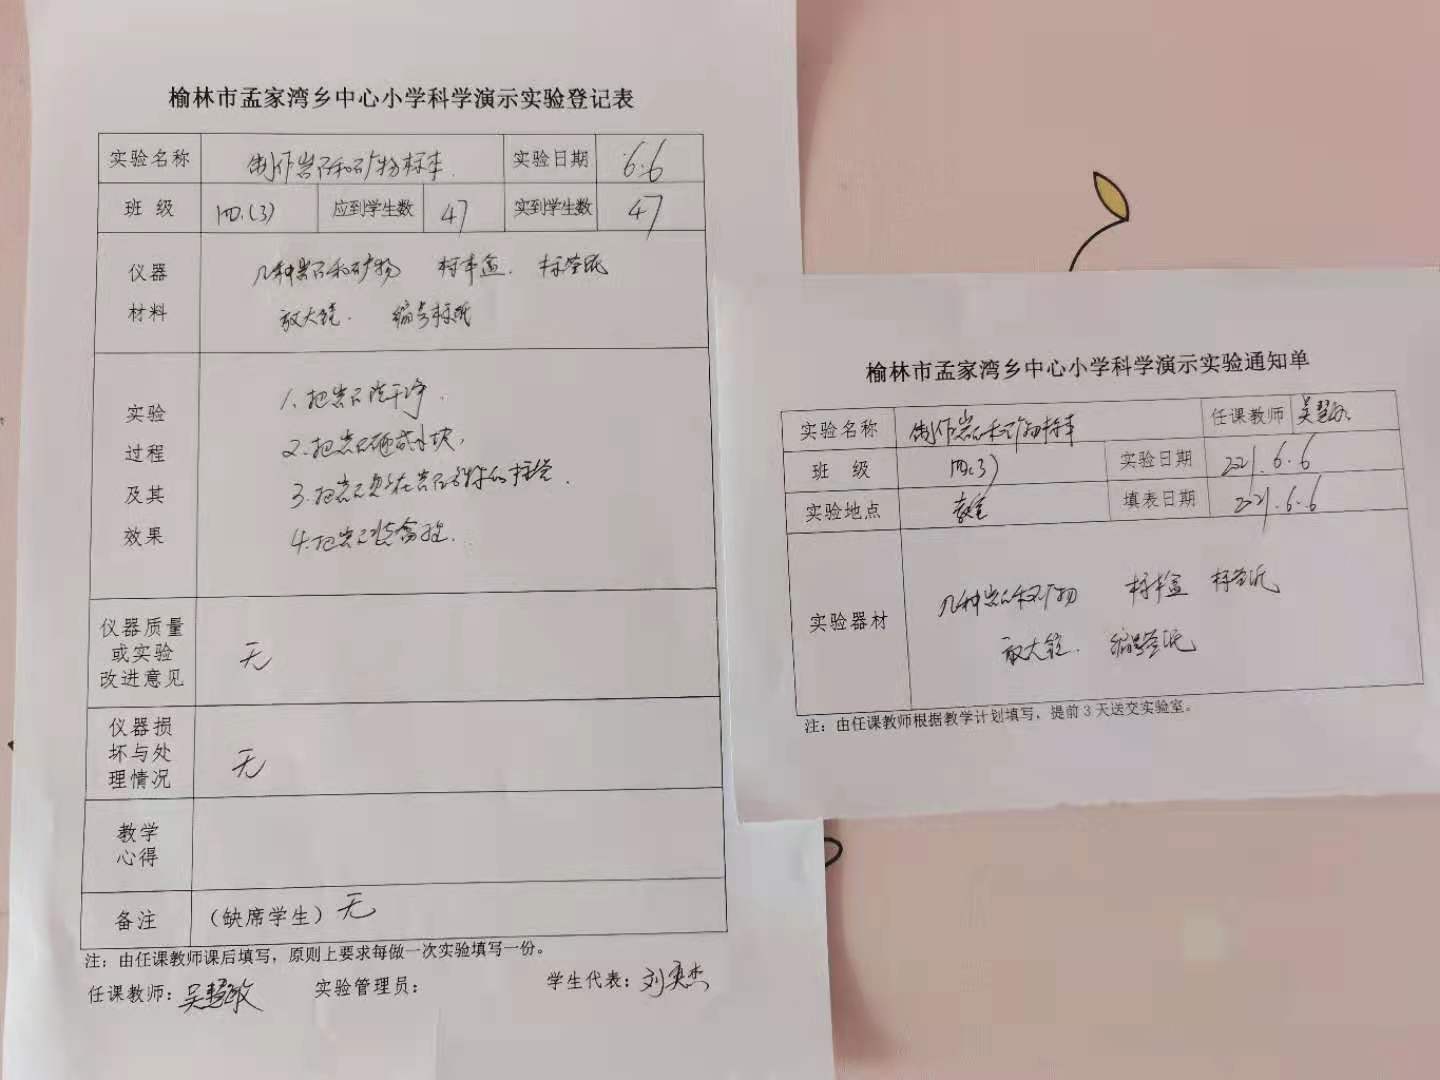 榆林市孟家湾乡中心小学科学演示实验登记表
实验名称 制作岩石和矿物标本 实验日期 6.6
班 级 四.(3) 应到学生数 47 实到学生数 47
仪器
材料
几种岩石和矿物 标本盒. 标签纸
放大镜. 编号标纸
实验
过程
及其
效果
1.把岩石洗干净.
2.把岩石砸成小块,
3.把岩石
4.把岩石装盒
仪器质量
或实验
改进意见
无
仪器损
坏与处
理情况
无
教学
心得
备注 (缺席学生) 无
注:由任课教师课后填写,原则上要求每做一次实验填写一份。
任课教师:吴慧敏 实验管理员: 学生代表:刘奕杰
榆林市孟家湾乡中心小学科学演示实验通知单
实验名称 制作岩石和矿物标本 任课教师 吴慧敏
班 级 四(3) 实验日期 2021.6.6
实验地点 教室 填表日期 2021.6.6
实验器材
几种岩石和矿物 标本盒 标签纸
放大镜. 编号签纸
注:由任课教师根据教学计划填写,提前3天送交实验室。